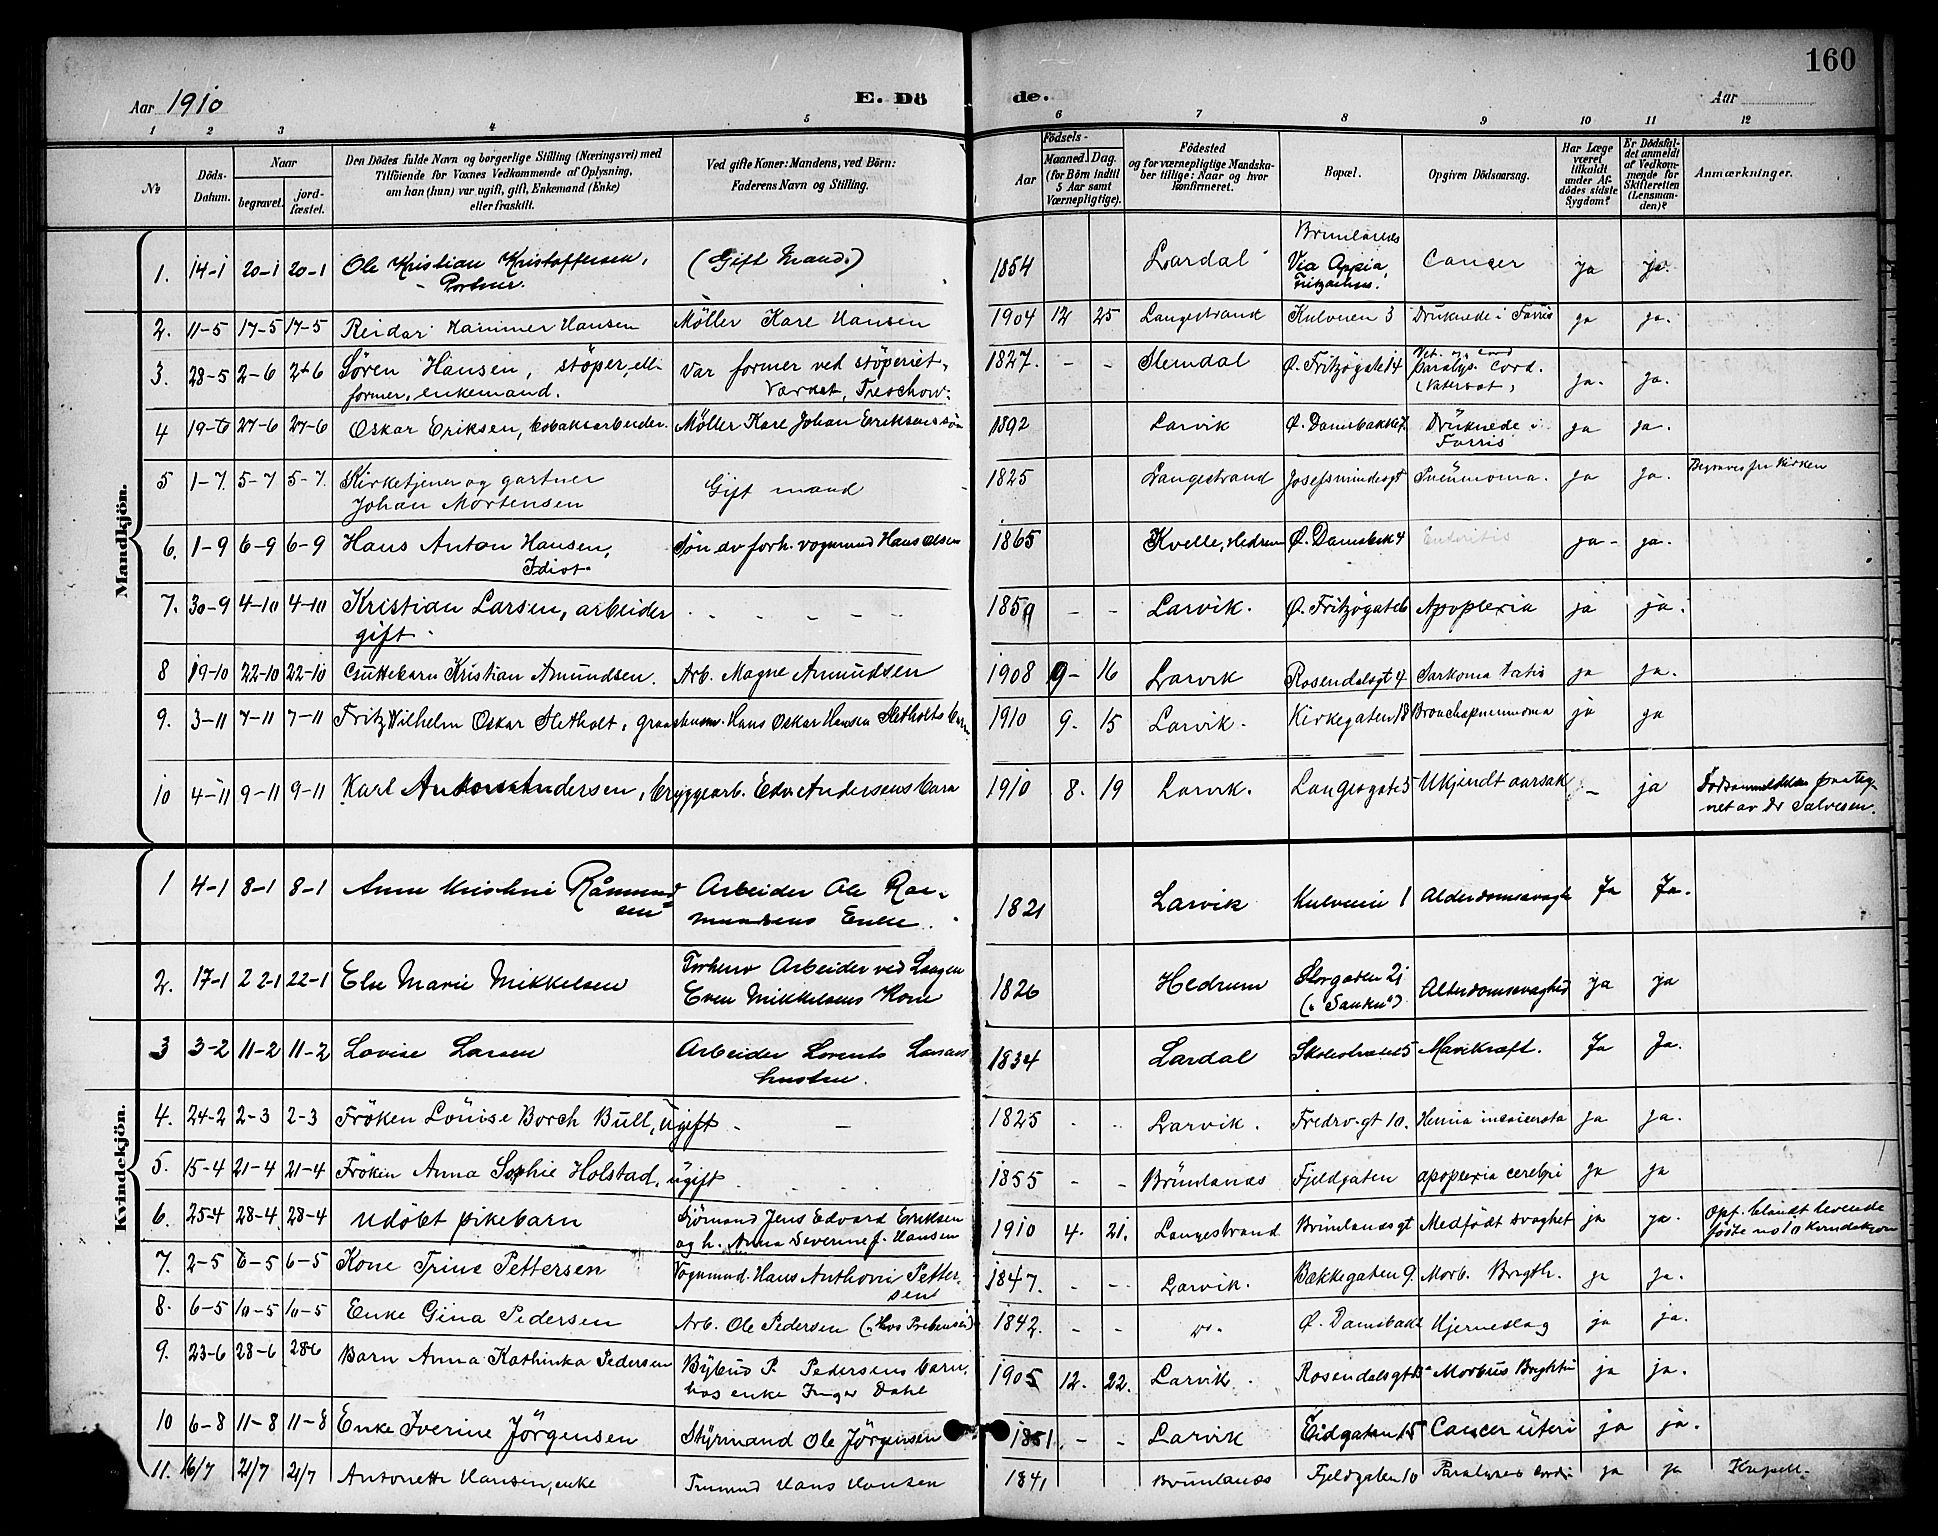 160
Aar 1910 E. Dö de. Aar
1 2 3 4 5 6 7 8 9 10 11 12
No
Döds-Datum.
Naar
begravet. jord-fæstet.
Den Dödes fulde Navn og borgerlige Stilling (Næringsvei) med
Tilföiende for Voxnes Vedkommende af Oplysning,
om han (hun) var ugift, gift, Enkemand (Enke)
eller fraskilt.
Ved gifte Koner: Mandens, ved Börn:
Faderens Navn og Stilling.
Födsels-
Aar Maaned. Dag.
(for Börn indtil
5 Aar samt
Værnepligtige).
Födested
og for værnepligtige Mandska-
ber tillige: Naar og hvor
konfirmeret.
Bopæl.
Opgiven Dödsaarsag.
Har Læge
været
tilkaldt
under Af-
dödes sidste
Sygdom?
Er Dödsfal-
det anmeldt
af Vedkom-
mende for
Skifteretten
(Lensman-
den)?
Anmærkninger.
Mandkjön.
1. 14-1 20-1 20-1 Ole Kristian Kristoffersen, (Gift Mand.) 1854 Lardal Brunlanes Via Appia, Cancer ja ja.
2. 11-5 17-5 17-5 Reidar Hammer Hansen Möller Karl Hansen 1904 12 25 Langestrand Kulveien 3 Druknede i Farris ja ja.
3. 28-5 2-6 2-6 Søren Hansen, støper, ell. var former ved støperiet, 1827. - - Slemdal Ø. Fritzøgate 14 ja. ja.
former, enkemand. Værket, Treschow.
4 19-6 27-6 27-6 Oskar Eriksen, Möller Karl Johan Erikssens søn 1892 Larvik Ø. Damsbakke 7. Drüknede i Farris ja ja.
5 1-7. 5-7 5-7. Kirketjener og gartner Johan Mortensen Gift mand 1825 Langestrand Josefsmindesgt Pneümonia. ja ja. Begraves fra Kirken
6. 1-9 6-9 6-9 Hans Anton Hansen, Idiot. Søn av forh. vognmand Hans Olsen 1865 Kvelle, Hedrum Ø. Damsbak 4 Enteritis ja - ja.
7. 30-9 4-10 4-10 Kristian Larsen, arbeider gift. 1859 - - Larvik. Ø. Fritzøgate 6 Apoplexia ja ja.
8 19-10 22-10 22-10 Guttebarn Kristian Amundsen. Arb. Magne Amundsen 1908 9- 16 Larvik Rosendalsgt 4 Sarkoma ja ja.
9. 3-11 7-11 7-11 Fritz Vilhelm Oskar Sletholt, Hans Oskar Hansen Sletholts barn 1910 9. 15 Larvik. Kirkegaten 18 Bronchopneumoma ja ja
10 4-11 9-11 9-11 Karl Anton Andersen, bryggearb. Edv Andersens barn 1910 8. 19 Larvik. Langesgate 5 Ukjendt aarsak - ja Dødsanmeldelse paateg-
net av Dr Salvesen.
Kvindekjön.
1 4-1 8-1 8-1 Anne Kristine Råmund sen Arbeider Ole Ra-
mundsens Enke. 1821 Larvik Kulveien 1 Alderdomssvagh Ja Ja.
2. 17-1 22-1 22-1 Else Marie Mikkelsen Forhenv Arbeider ved Laagen
Even Mikkelsens Kone 1826 Hedrum Storgaten 21 Alderdomssvaghed ja ja
3 3-2 11-2 11-2 Lovise Larsen Arbeider Lorents Larsens hustru. 1834 Lardal Skolestræde 5 Mavekræft. Ja Ja.
4. 24-2 2-3 2-3 Frøken Louise Borch Bull, ugift - 1825 Larvik. Fredrv.gt 10. Hernia ja ja.
5. 15-4 21-4 21-4 Frøken Anna Sophie Holstad, ugift 1855 - - Brünlanes Fjeldgaten apoplexia cerebri ja ja
6. 25-4 28-4 28-4 Udöbt pikebarn Sjömand Jens Edvard Eriksen
og h. Anna Severine f. Hansen 1910 4. 21. Langestrand Brünlandsgt Medfödt svaghet ja ja. Opf. blandt levende
födte no 10 Kvindekjøn
7. 2-5 6-5 6-5 Kone Trine Pettersen Vognmand Hans Anthoni Petter-
sent 1847. - - Larvik. Bækkegaten 9. Morb. Brigth. ja ja.
8. 6-5 10-5 10-5 Enke Gina Pedersen Arb. Ole Pedersen 1842. - - do. Ø. Damsbak Hjerneslag ja ja.
9. 23-6 28-6 28-6 Barn Anna Kathinka Pedersen Bybud P. Pedersens barn,
hos enke Inger Dahl 1905 12. 22. Larvik. Rosendalsgt Morbus Brightii ja ja.
10 6-8 11-8 11-8 Enke Iverine Jörgensen Styrmand Ole Jörgensen 1851. - - Larvik Eidgaten 15 Cancer uteri ja ja.
11. 16/7 21/7 21/7 Antonette Hansen, enke Hans Hansen 1841 Brunlanes Fjeldgaten 10 Paralyses cordis ja ja Kapell.